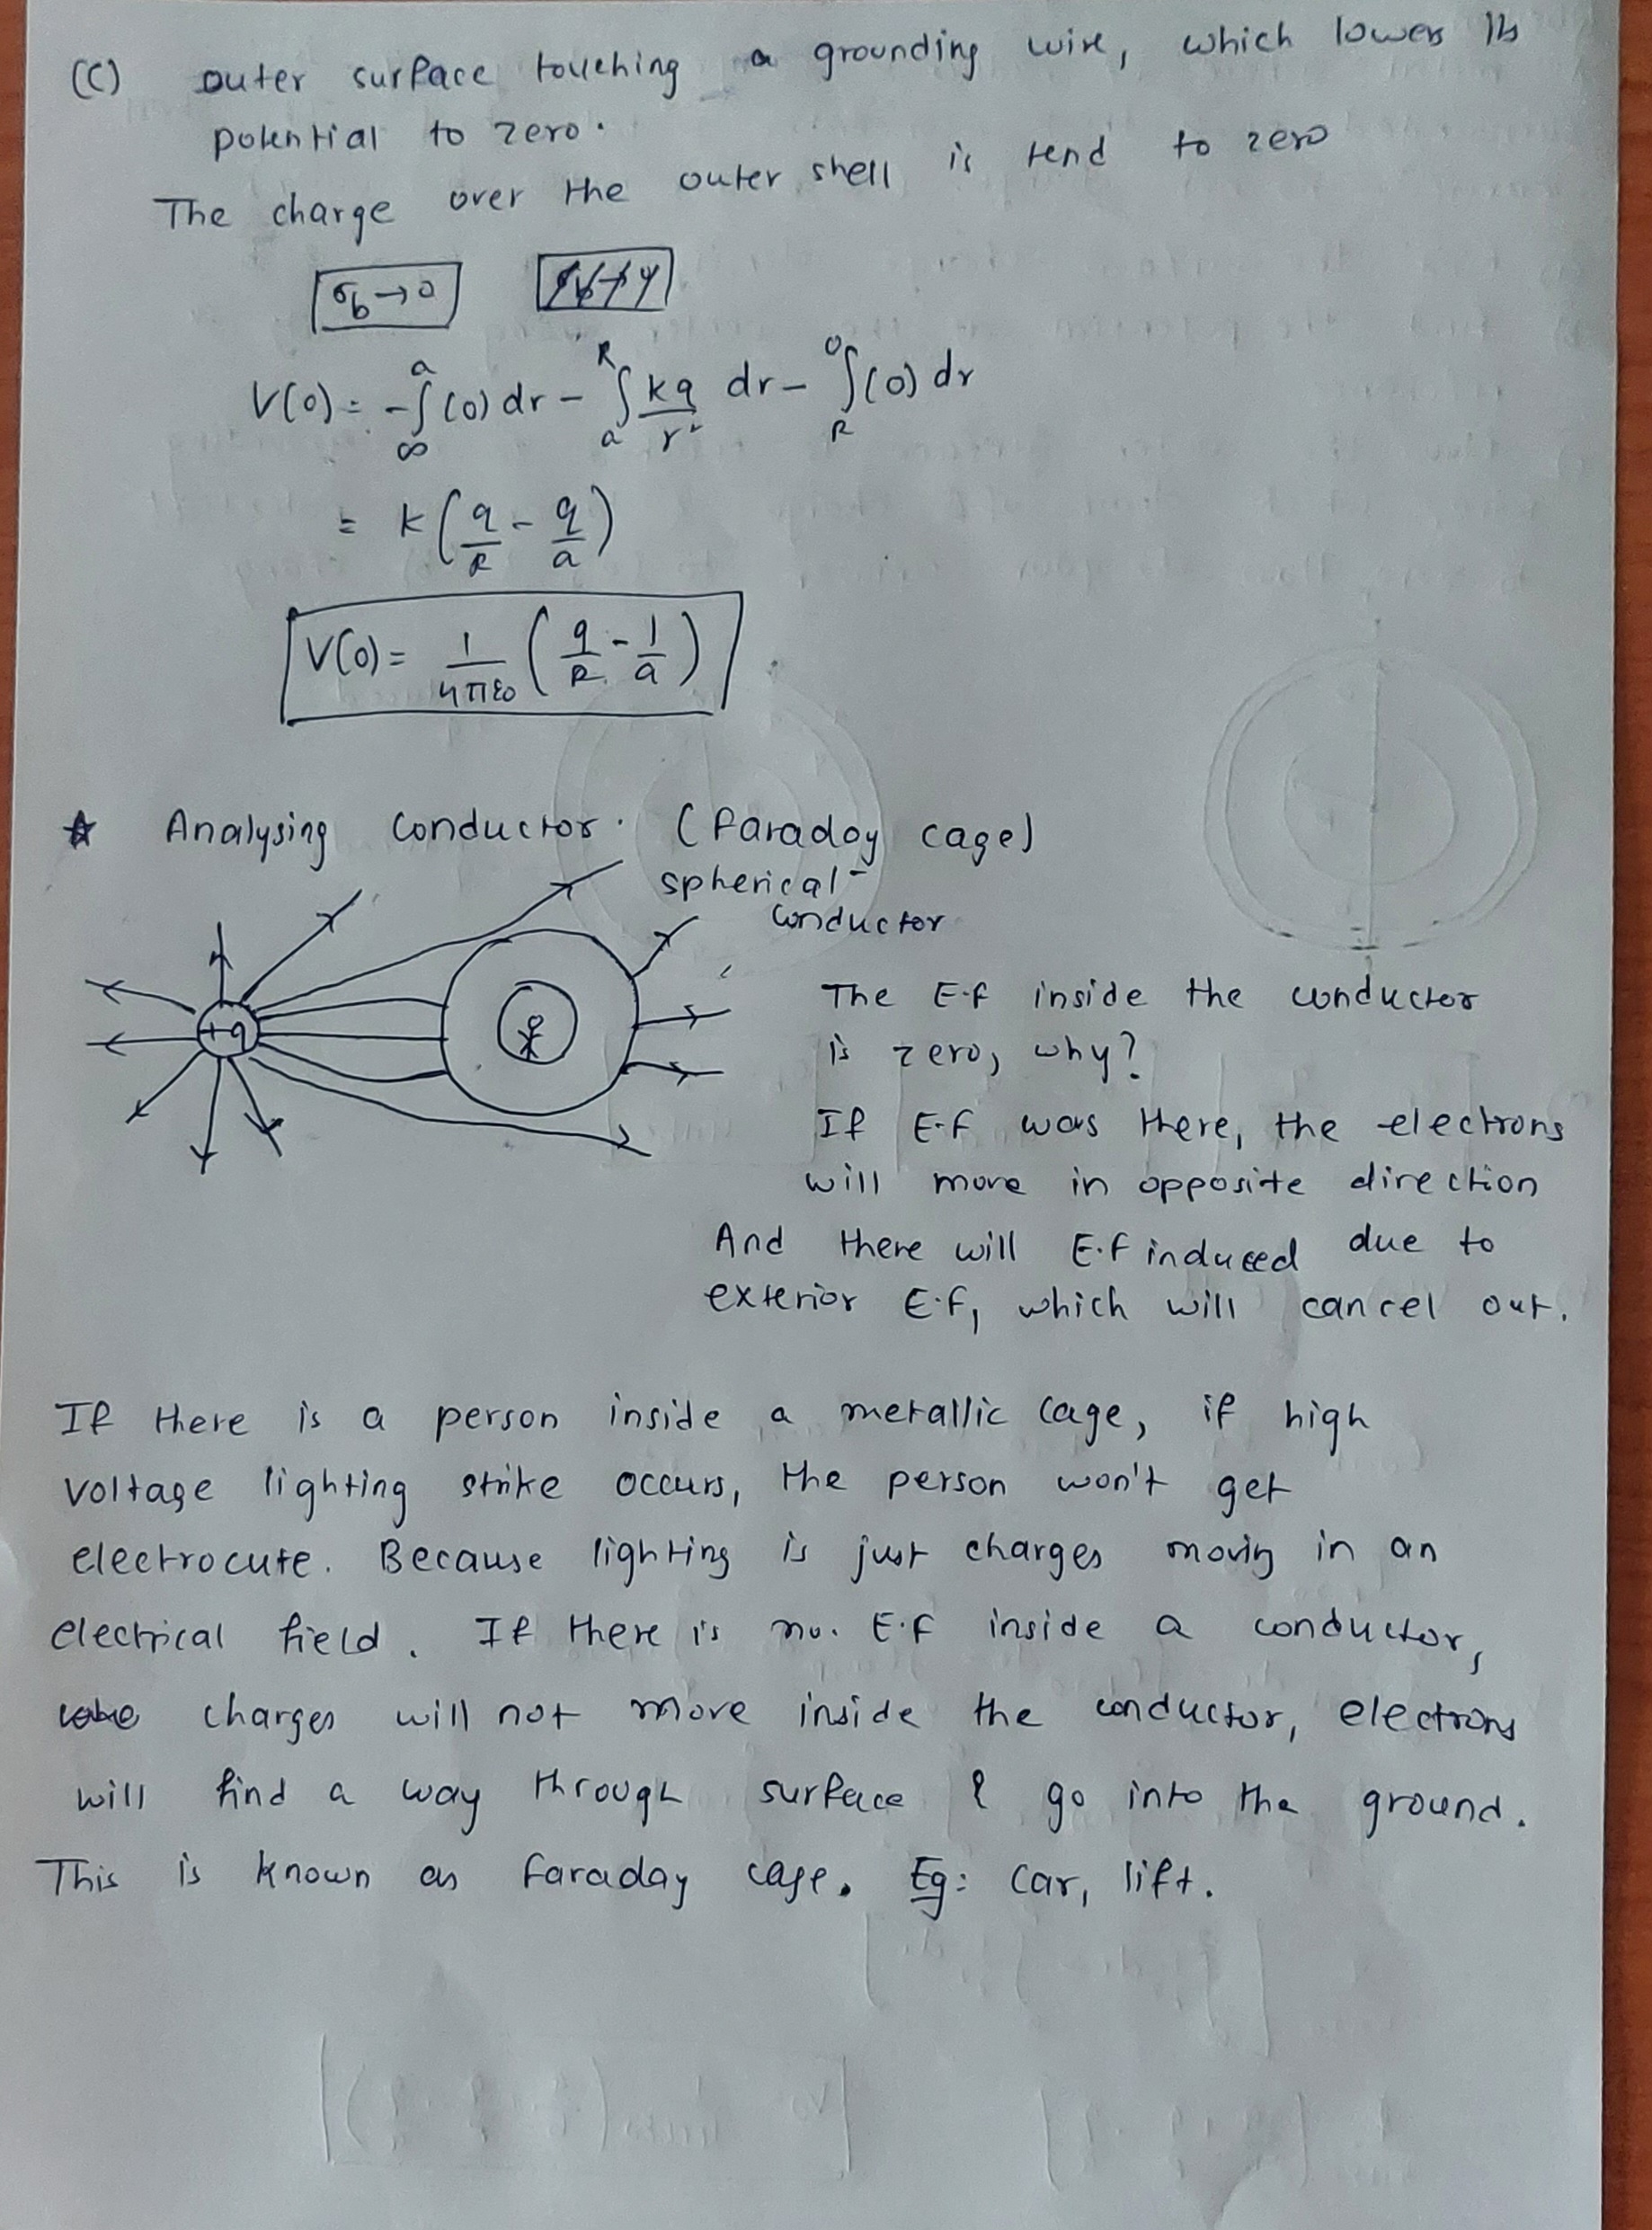 (C) outer surface touching a grounding wire, which lowers its
potential to zero.
The charge over the outer shell is tend to zero
σb→0
V(0) = -∫∞^a (0) dr - ∫a^R kq/r² dr - ∫R^0 (0) dr
= k(q/R - q/a)
V(0) = 1/4πε0 (q/R - 1/a)
☆ Analysing conductor. (faraday cage)
spherical
conductor
+q
The E.f inside the conductor
is zero, why?
If E.f was there, the electrons
will move in opposite direction
And there will E.f induced due to
exterior E.f, which will cancel out.
If there is a person inside a metallic cage, if high
voltage lighting strike occurs, the person won't get
electrocute. Because lighting is just charges moving in an
electrical field. If there is no. E.f inside a conductor,
charges will not move inside the conductor, electrons
will find a way through surface & go into the ground.
This is known as faraday cage. Eg: car, lift.